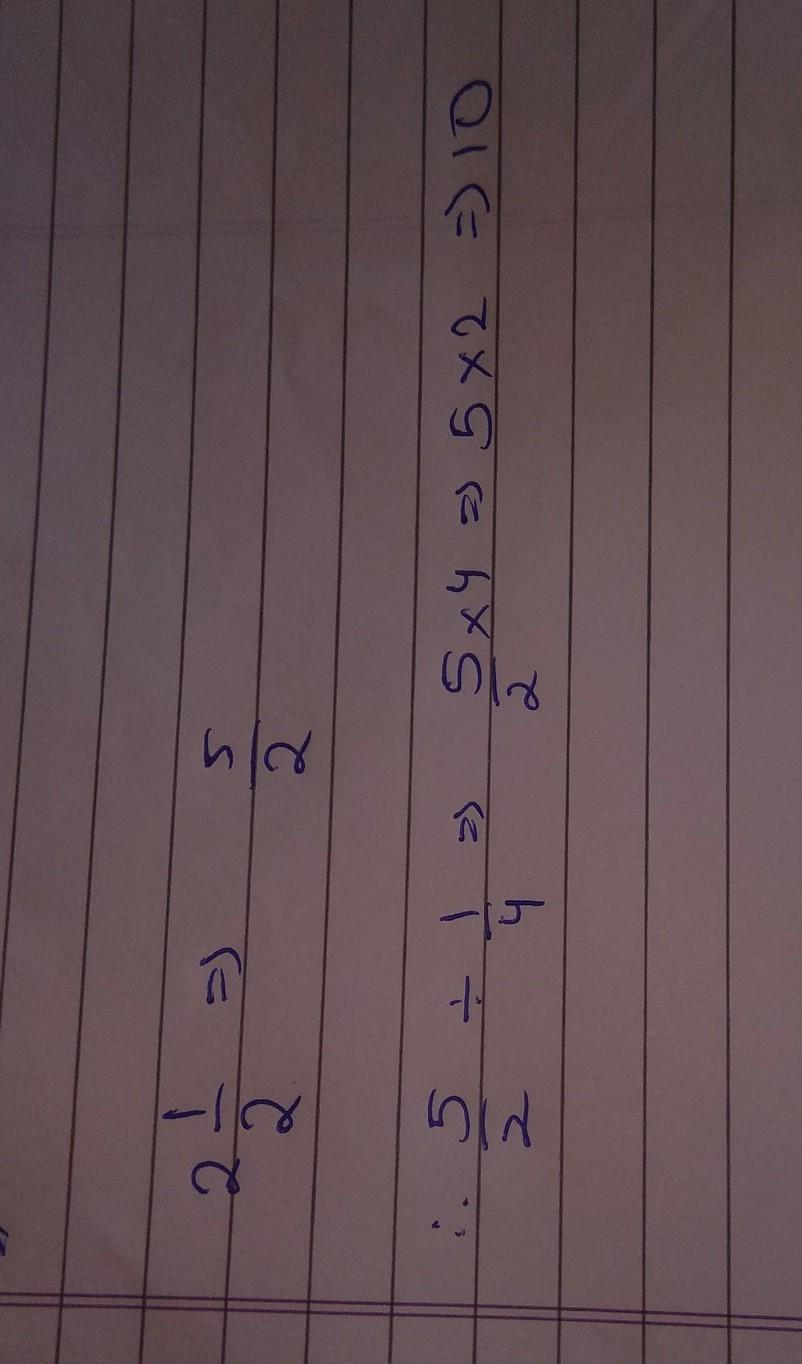 2 1/2 ⇒ 5/2
∴ 5/2 ÷ 1/4 ⇒ 5/2 × 4 ⇒ 5 × 2 ⇒ 10